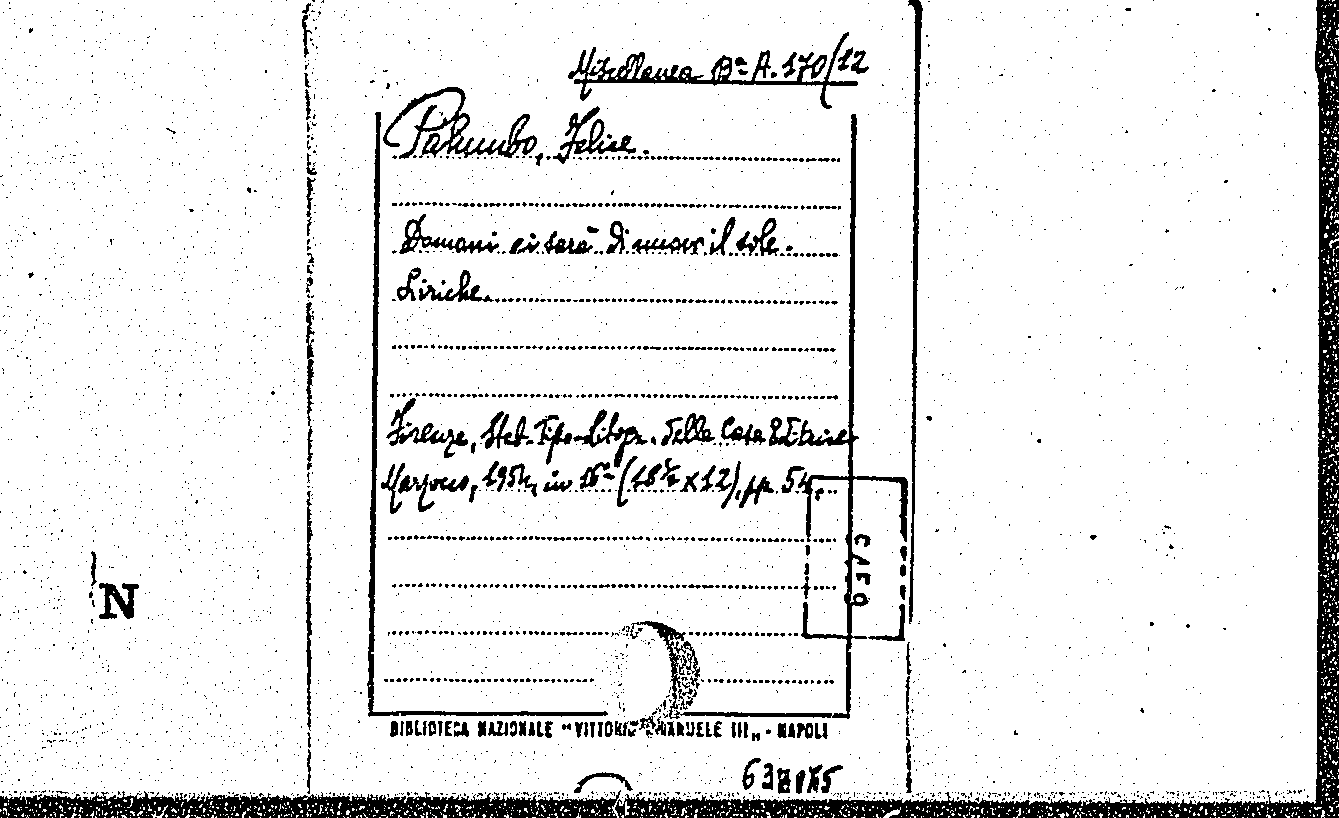 Miscellanea Bª A. 170/12
Palumbo, Felice.
Domani ci sarà di nuovo il sole.
Liriche.
Firenze, Stab. Tipo-Litogr. della Casa Editrice
Marzocco, 1954, in 16° (18½ x 12), pp. 54.
N
BIBLIOTECA NAZIONALE "VITTORIO EMANUELE III„ - NAPOLI